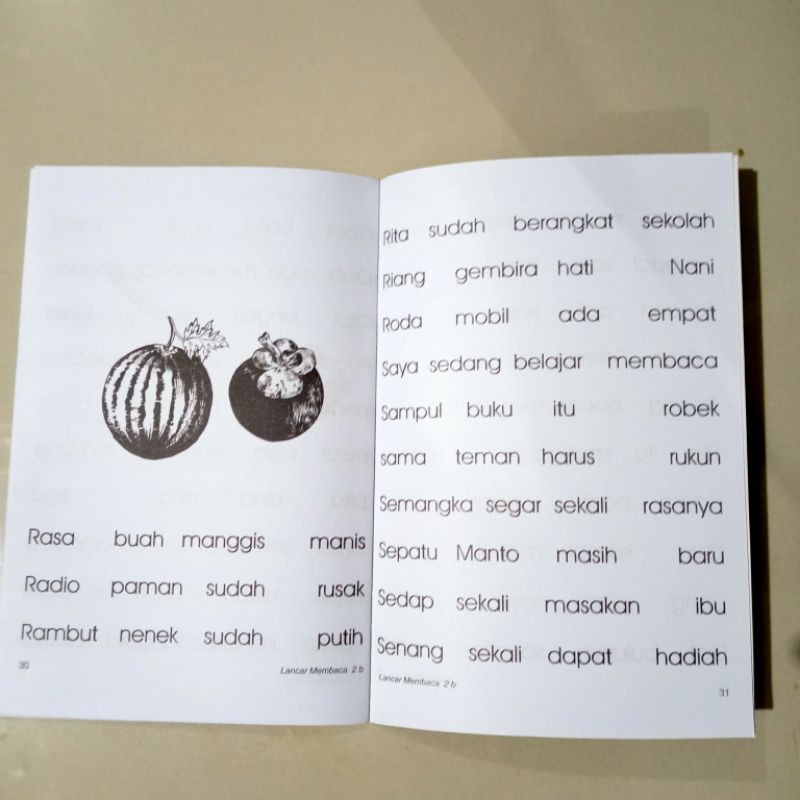 Rasa buah manggis manis
Radio paman sudah rusak
Rambut nenek sudah putih
30
Lancar Membaca 2 b
Rita sudah berangkat sekolah
Riang gembira hati Nani
Roda mobil ada empat
Saya sedang belajar membaca
Sampul buku itu robek
sama teman harus rukun
Semangka segar sekali rasanya
Sepatu Manto masih baru
Sedap sekali masakan ibu
Senang sekali dapat hadiah
Lancar Membaca 2 b
31